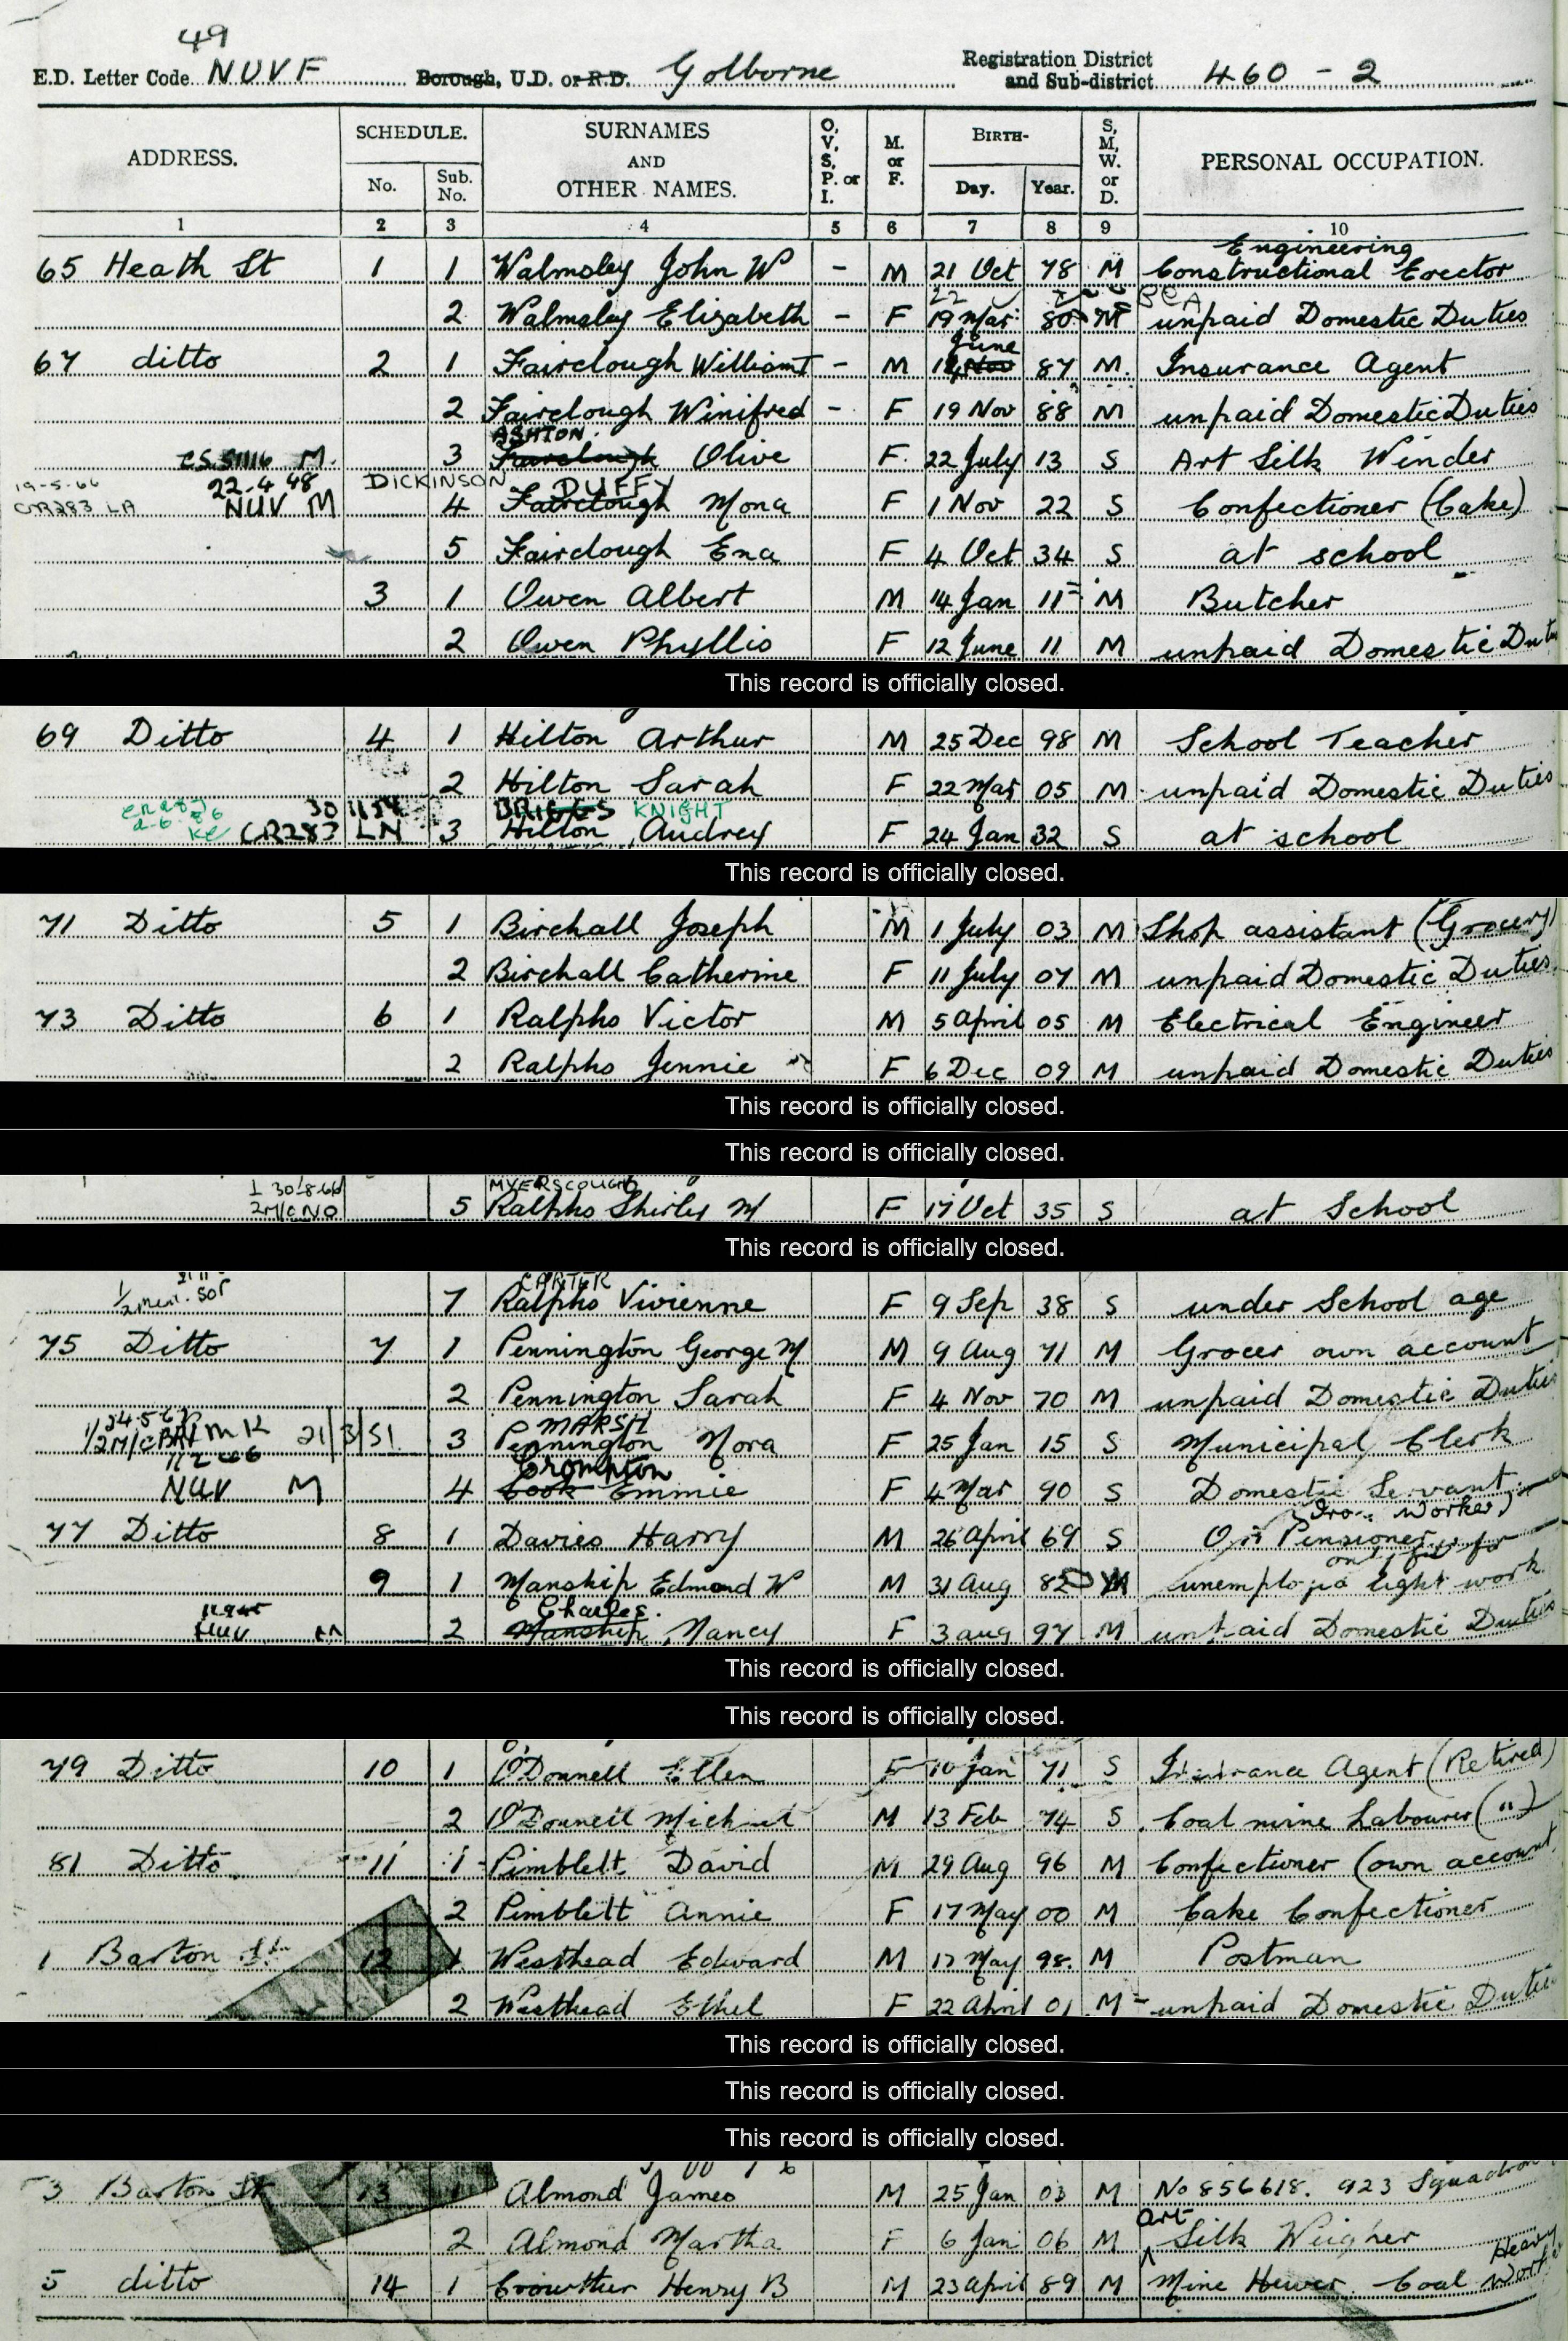 49
E.D. Letter Code NUVF Borough, U.D. or R.D. Golborne Registration District and Sub-district 460 - 2
ADDRESS. SCHEDULE. No. Sub. No. SURNAMES AND OTHER NAMES. O, V, S, P. or I. M. or F. BIRTH- Day. Year. S, M, W. or D. PERSONAL OCCUPATION.
1 2 3 4 5 6 7 8 9 10
Engineering
65 Heath St 1 1 Walmsley John W - M 21 Oct 78 M Constructional Erector
22
2 Walmsley Elizabeth - F 19 Mar 80 M unpaid Domestic Duties
June
67 ditto 2 1 Fairclough William T - M 14 Nov 87 M. Insurance Agent
2 Fairclough Winifred - F 19 Nov 88 M unpaid Domestic Duties
ASHTON.
M. 3 Fairclough Olive F. 22 July 13 S Art Silk Winder
19-5-66 22.4.48 DICKINSON DUFFY
CR283 LA NUV M 4 Fairclough Mona F 1 Nov 22 S Confectioner (Cake)
5 Fairclough Ena F 4 Oct 34 S at school
3 1 Owen Albert M 14 Jan 11 M Butcher
2 Owen Phyllis F 12 June 11 M unpaid Domestic Dut
This record is officially closed.
69 Ditto 4 1 Hilton Arthur M 25 Dec 98 M School Teacher
2 Hilton Sarah F 22 Mar 05 M unpaid Domestic Duties
30 11 54 BRIGGS KNIGHT
CR283 LN 3 Hilton Audrey F 24 Jan 32 S at school
This record is officially closed.
71 Ditto 5 1 Birchall Joseph M 1 July 03 M Shop assistant (Grocery)
2 Birchall Catherine F 11 July 07 M unpaid Domestic Duties
73 Ditto 6 1 Ralpho Victor M 5 April 05 M Electrical Engineer
2 Ralpho Jennie F 6 Dec 09 M unpaid Domestic Duties
This record is officially closed.
This record is officially closed.
30-8-66 MYERSCOUGH
5 Ralpho Shirley M F 17 Oct 35 S at School
This record is officially closed.
CARTER
7 Ralpho Vivienne F 9 Sep 38 S under School age
75 Ditto 7 1 Pennington George M M 9 Aug 71 M Grocer own account
2 Pennington Sarah F 4 Nov 70 M unpaid Domestic Duties
MARSH
21/3/51 3 Pennington Nora F 25 Jan 15 S Municipal Clerk
Crompton
NUV M 4 Cook Emmie F 4 Mar 90 S Domestic Servant
Worker)
77 Ditto 8 1 Davies Harry M 26 April 69 S Pensioner
9 1 Manship Edmond W M 31 Aug 82 M unemployed light work
Charles.
2 Manship Nancy F 3 aug 97 M unpaid Domestic Duties
This record is officially closed.
This record is officially closed.
79 Ditto 10 1 O'Donnell Ellen F 10 Jan 71 S Insurance Agent (Retired)
2 O'Donnell Michael M 13 Feb 74 S Coal mine Labourer (")
81 Ditto 11 1 Pimblett David M 29 Aug 96 M Confectioner (own account
2 Pimblett Annie F 17 May 00 M Cake Confectioner
1 Barton St. 12 1 Westhead Edward M 17 May 98. M Postman
2 Westhead Ethel F 22 April 01 M unpaid Domestic Duties
This record is officially closed.
This record is officially closed.
This record is officially closed.
3 Barton St 13 1 Almond James M 25 Jan 03 M No 856618. 923 Squadron
Art
2 Almond Martha F 6 Jan 06 M Silk Weigher
Heavy
5 ditto 14 1 Crowther Henry B M 23 April 89 M Mine Hewer. Coal Worker